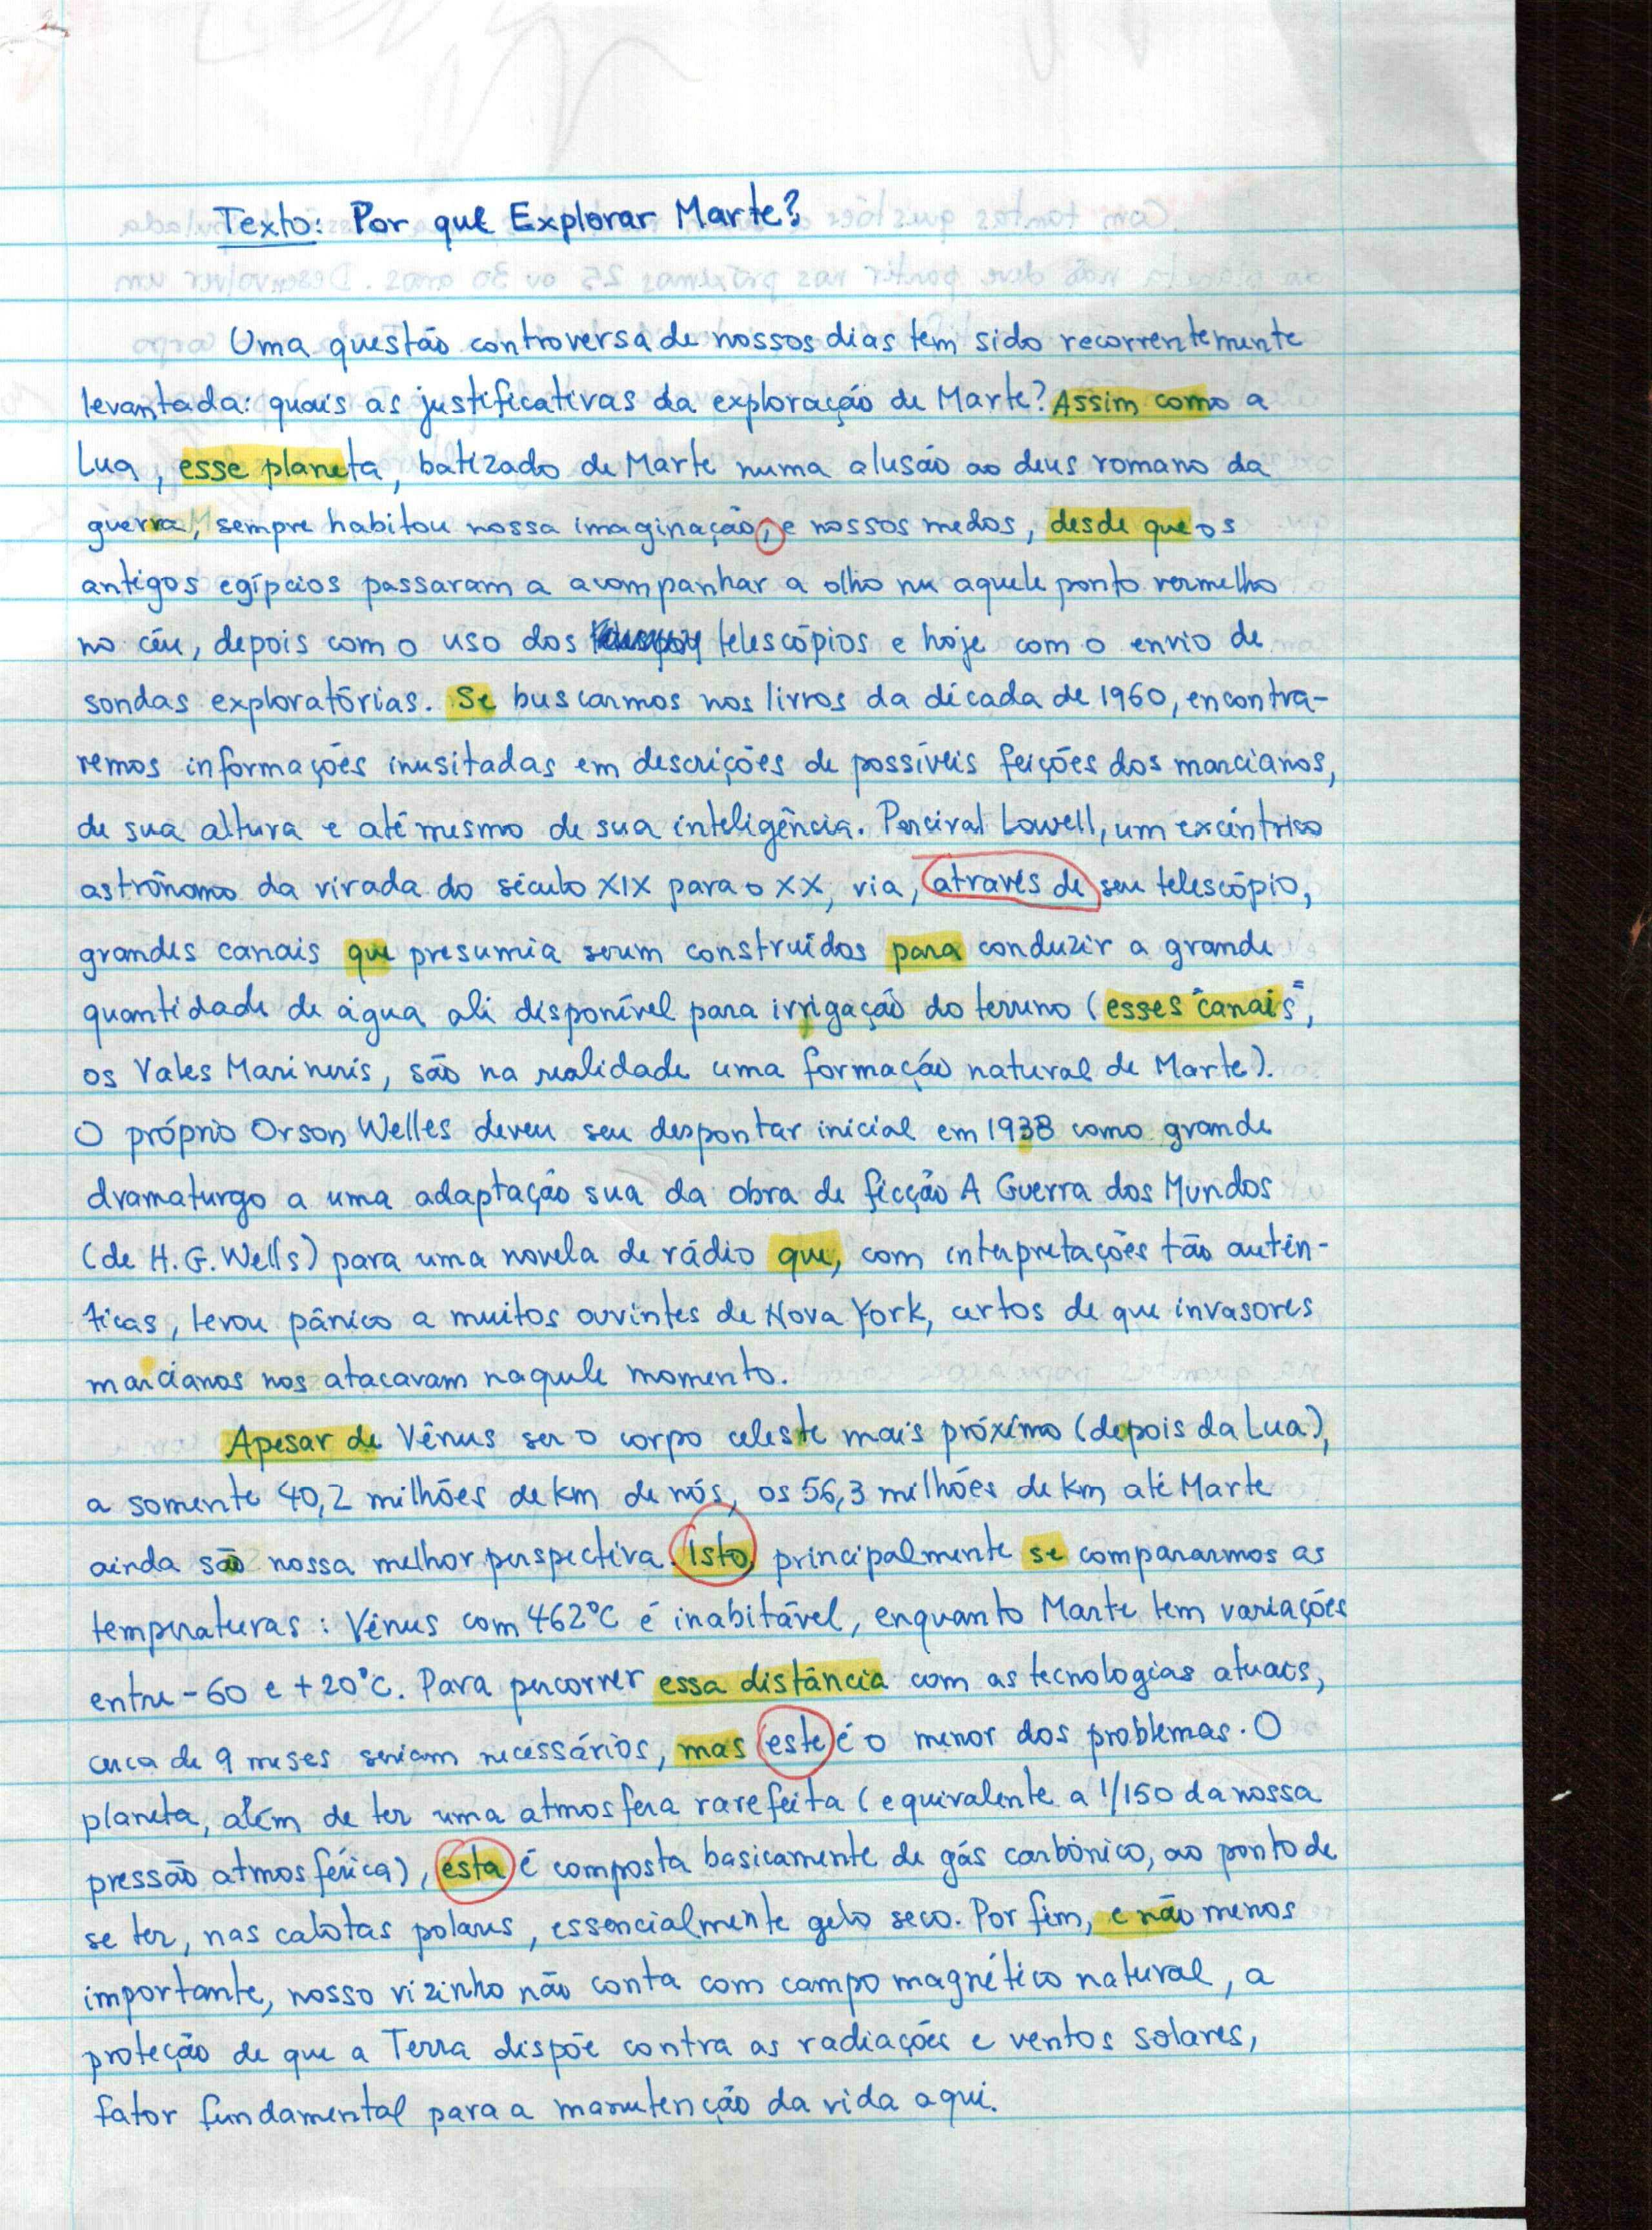 Texto: Por que Explorar Marte?
Uma questão controversa de nossos dias tem sido recorrentemente
levantada: quais as justificativas da exploração de Marte? Assim como a
Lua, esse planeta, batizado de Marte numa alusão ao deus romano da
guerra, sempre habitou nossa imaginação, e nossos medos, desde que os
antigos egípcios passaram a acompanhar a olho nu aquele ponto vermelho
no céu, depois com o uso dos telescópios e hoje com o envio de
sondas exploratórias. Se buscarmos nos livros da década de 1960, encontra-
remos informações inusitadas em descrições de possíveis feições dos marcianos,
de sua altura e até mesmo de sua inteligência. Percival Lowell, um excêntrico
astrônomo da virada do século XIX para o XX, via, através de seu telescópio,
grandes canais que presumia serem construídos para conduzir a grande
quantidade de água ali disponível para irrigação do terreno (esses "canais",
os Vales Marineris, são na realidade uma formação natural de Marte).
O próprio Orson Welles deveu seu despontar inicial em 1938 como grande
dramaturgo a uma adaptação sua da obra de ficção A Guerra dos Mundos
(de H. G. Wells) para uma novela de rádio que, com interpretações tão autên-
ticas, levou pânico a muitos ouvintes de Nova York, certos de que invasores
marcianos nos atacavam naquele momento.
Apesar de Vênus ser o corpo celeste mais próximo (depois da Lua),
a somente 40,2 milhões de km de nós, os 56,3 milhões de km até Marte
ainda são nossa melhor perspectiva. Isto, principalmente se compararmos as
temperaturas: Vênus com 462°C é inabitável, enquanto Marte tem variações
entre -60 e +20°C. Para percorrer essa distância com as tecnologias atuais,
cerca de 9 meses seriam necessários, mas este é o menor dos problemas. O
planeta, além de ter uma atmosfera rarefeita (equivalente a 1/150 da nossa
pressão atmosférica), esta é composta basicamente de gás carbônico, ao ponto de
se ter, nas calotas polares, essencialmente gelo seco. Por fim, e não menos
importante, nosso vizinho não conta com campo magnético natural, a
proteção de que a Terra dispõe contra as radiações e ventos solares,
fator fundamental para a manutenção da vida aqui.